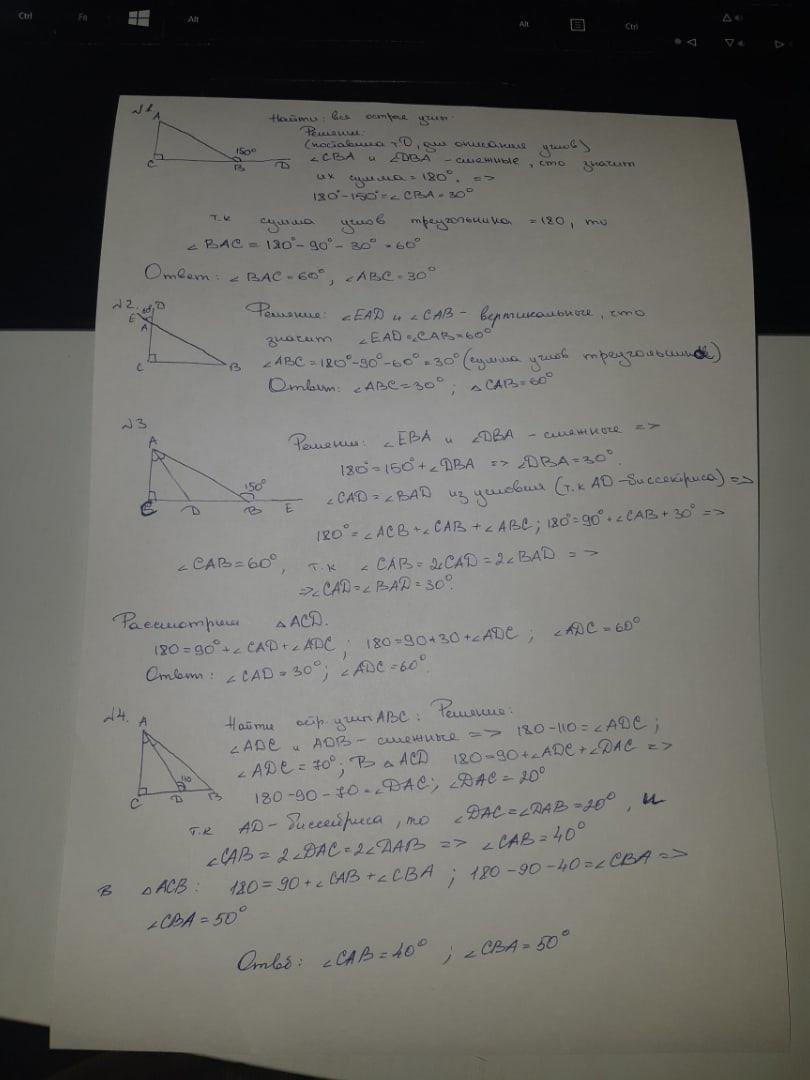 Ctrl Fn Alt Alt Ctrl
№1
A
C
150°
B
D
Найти: все острые углы.
Решение:
(поставила т.D, для описания углов)
∠CBA и ∠DBA - смежные, что значит
их сумма = 180°. =>
180°-150°=∠CBA=30°
т.к сумма углов треугольника =180, то
∠BAC = 180°-90°-30°=60°
Ответ: ∠BAC=60°, ∠ABC=30°
№2.
60°
D
E
A
C
B
Решение: ∠EAD и ∠CAB - вертикальные, что
значит ∠EAD=∠CAB=60°
∠ABC=180°-90°-60°=30° (сумма углов треугольника)
Ответ: ∠ABC=30°; △CAB=60°
№3
A
C
D
150°
B
E
Решение: ∠EBA и ∠DBA - смежные =>
180°=150°+∠DBA => ∠DBA=30°.
∠CAD=∠BAD из условия (т.к AD-биссектриса) =>
180°=∠ACB+∠CAB+∠ABC; 180°=90°+∠CAB+30° =>
∠CAB=60°, т.к ∠CAB=2∠CAD=2∠BAD =>
=>∠CAD=∠BAD=30°.
Рассмотрим △ACD.
180=90°+∠CAD+∠ADC; 180=90+30+∠ADC; ∠ADC=60°
Ответ: ∠CAD=30°; ∠ADC=60°.
№4.
A
C
D
110
B
Найти остр. углы ABC: Решение:
∠ADC и ADB - смежные => 180-110=∠ADC;
∠ADC=70°; В △ACD 180=90+∠ADC+∠DAC =>
180-90-70=∠DAC; ∠DAC=20°
т.к AD-биссектриса, то ∠DAC=∠DAB=20°, и
∠CAB=2∠DAC=2∠DAB => ∠CAB=40°
В △ACB: 180=90+∠CAB+∠CBA; 180-90-40=∠CBA =>
∠CBA=50°
Ответ: ∠CAB=40°; ∠CBA=50°